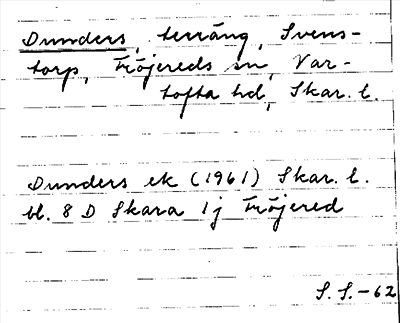 Dunders, terräng, Svens-
torp, Fröjereds sn, Var-
tofta hd, Skar. l.
Dunders ek (1961) Skar. l.
bl. 8 D Skara 1j Fröjered
S. S. -62